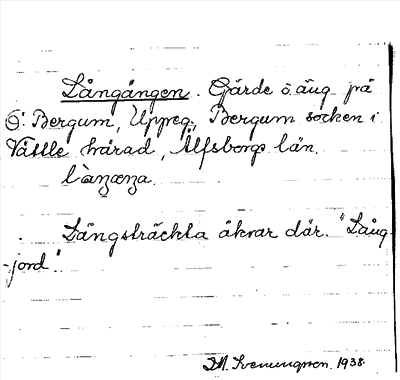 Långången. Gärde o. äng på
Ö. Bergum, Uppreg. Bergum socken i
Vättle härad, Älfsborgs län.
Långsträckta åkrar där. "Lång
-jord".
D.A. Svenungsson. 1938.